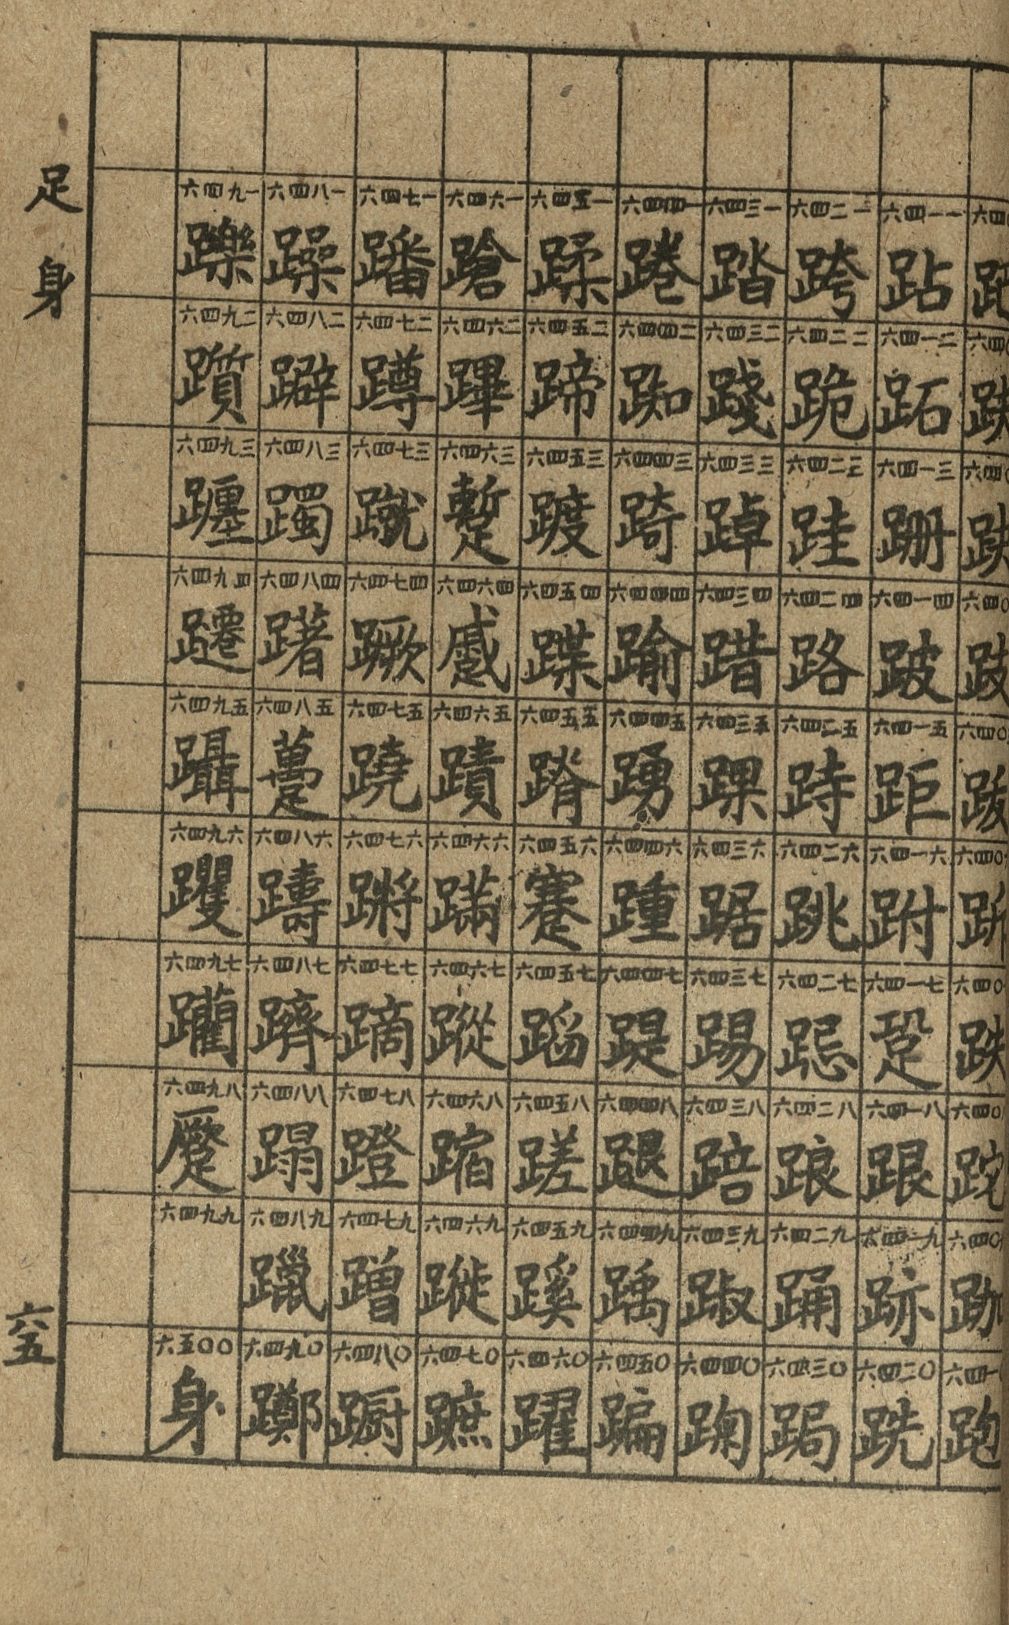 足身
六四一一
跕
六四一二
跖
六四一三
跚
六四一四
跛
六四一五
距
六四一六
跗
六四一七
跫
六四一八
跟
六四一九
跡
六四二〇
跣
六四二一
跨
六四二二
跪
六四二三
跬
六四二四
路
六四二五
跱
六四二六
跳
六四二七
跽
六四二八
踉
六四二九
踊
六四三〇
跼
六四三一
踏
六四三二
踐
六四三三
踔
六四三四
踖
六四三五
踝
六四三六
踞
六四三七
踢
六四三八
踣
六四三九
踧
六四四〇
踘
六四四一
踡
六四四二
踟
六四四三
踦
六四四四
踰
六四四五
踴
六四四六
踵
六四四七
踶
六四四八
蹆
六四四九
踽
六四五〇
蹁
六四五一
蹂
六四五二
蹄
六四五三
踱
六四五四
蹀
六四五五
蹐
六四五六
蹇
六四五七
蹈
六四五八
蹉
六四五九
蹊
六四六〇
躍
六四六一
蹌
六四六二
蹕
六四六三
蹔
六四六四
蹙
六四六五
蹟
六四六六
蹣
六四六七
蹤
六四六八
蹜
六四六九
蹝
六四七〇
蹠
六四七一
蹯
六四七二
蹲
六四七三
蹴
六四七四
蹶
六四七五
蹺
六四七六
蹡
六四七七
蹢
六四七八
蹬
六四七九
蹭
六四八〇
蹰
六四八一
躁
六四八二
躃
六四八三
躅
六四八四
躇
六四八五
躉
六四八六
躊
六四八七
躋
六四八八
蹋
六四八九
躐
六四九〇
躑
六四九一
躒
六四九二
躓
六四九三
躔
六四九四
躚
六四九五
躡
六四九六
躩
六四九七
六四九八
蹷
六四九九
六五〇〇
身
六五